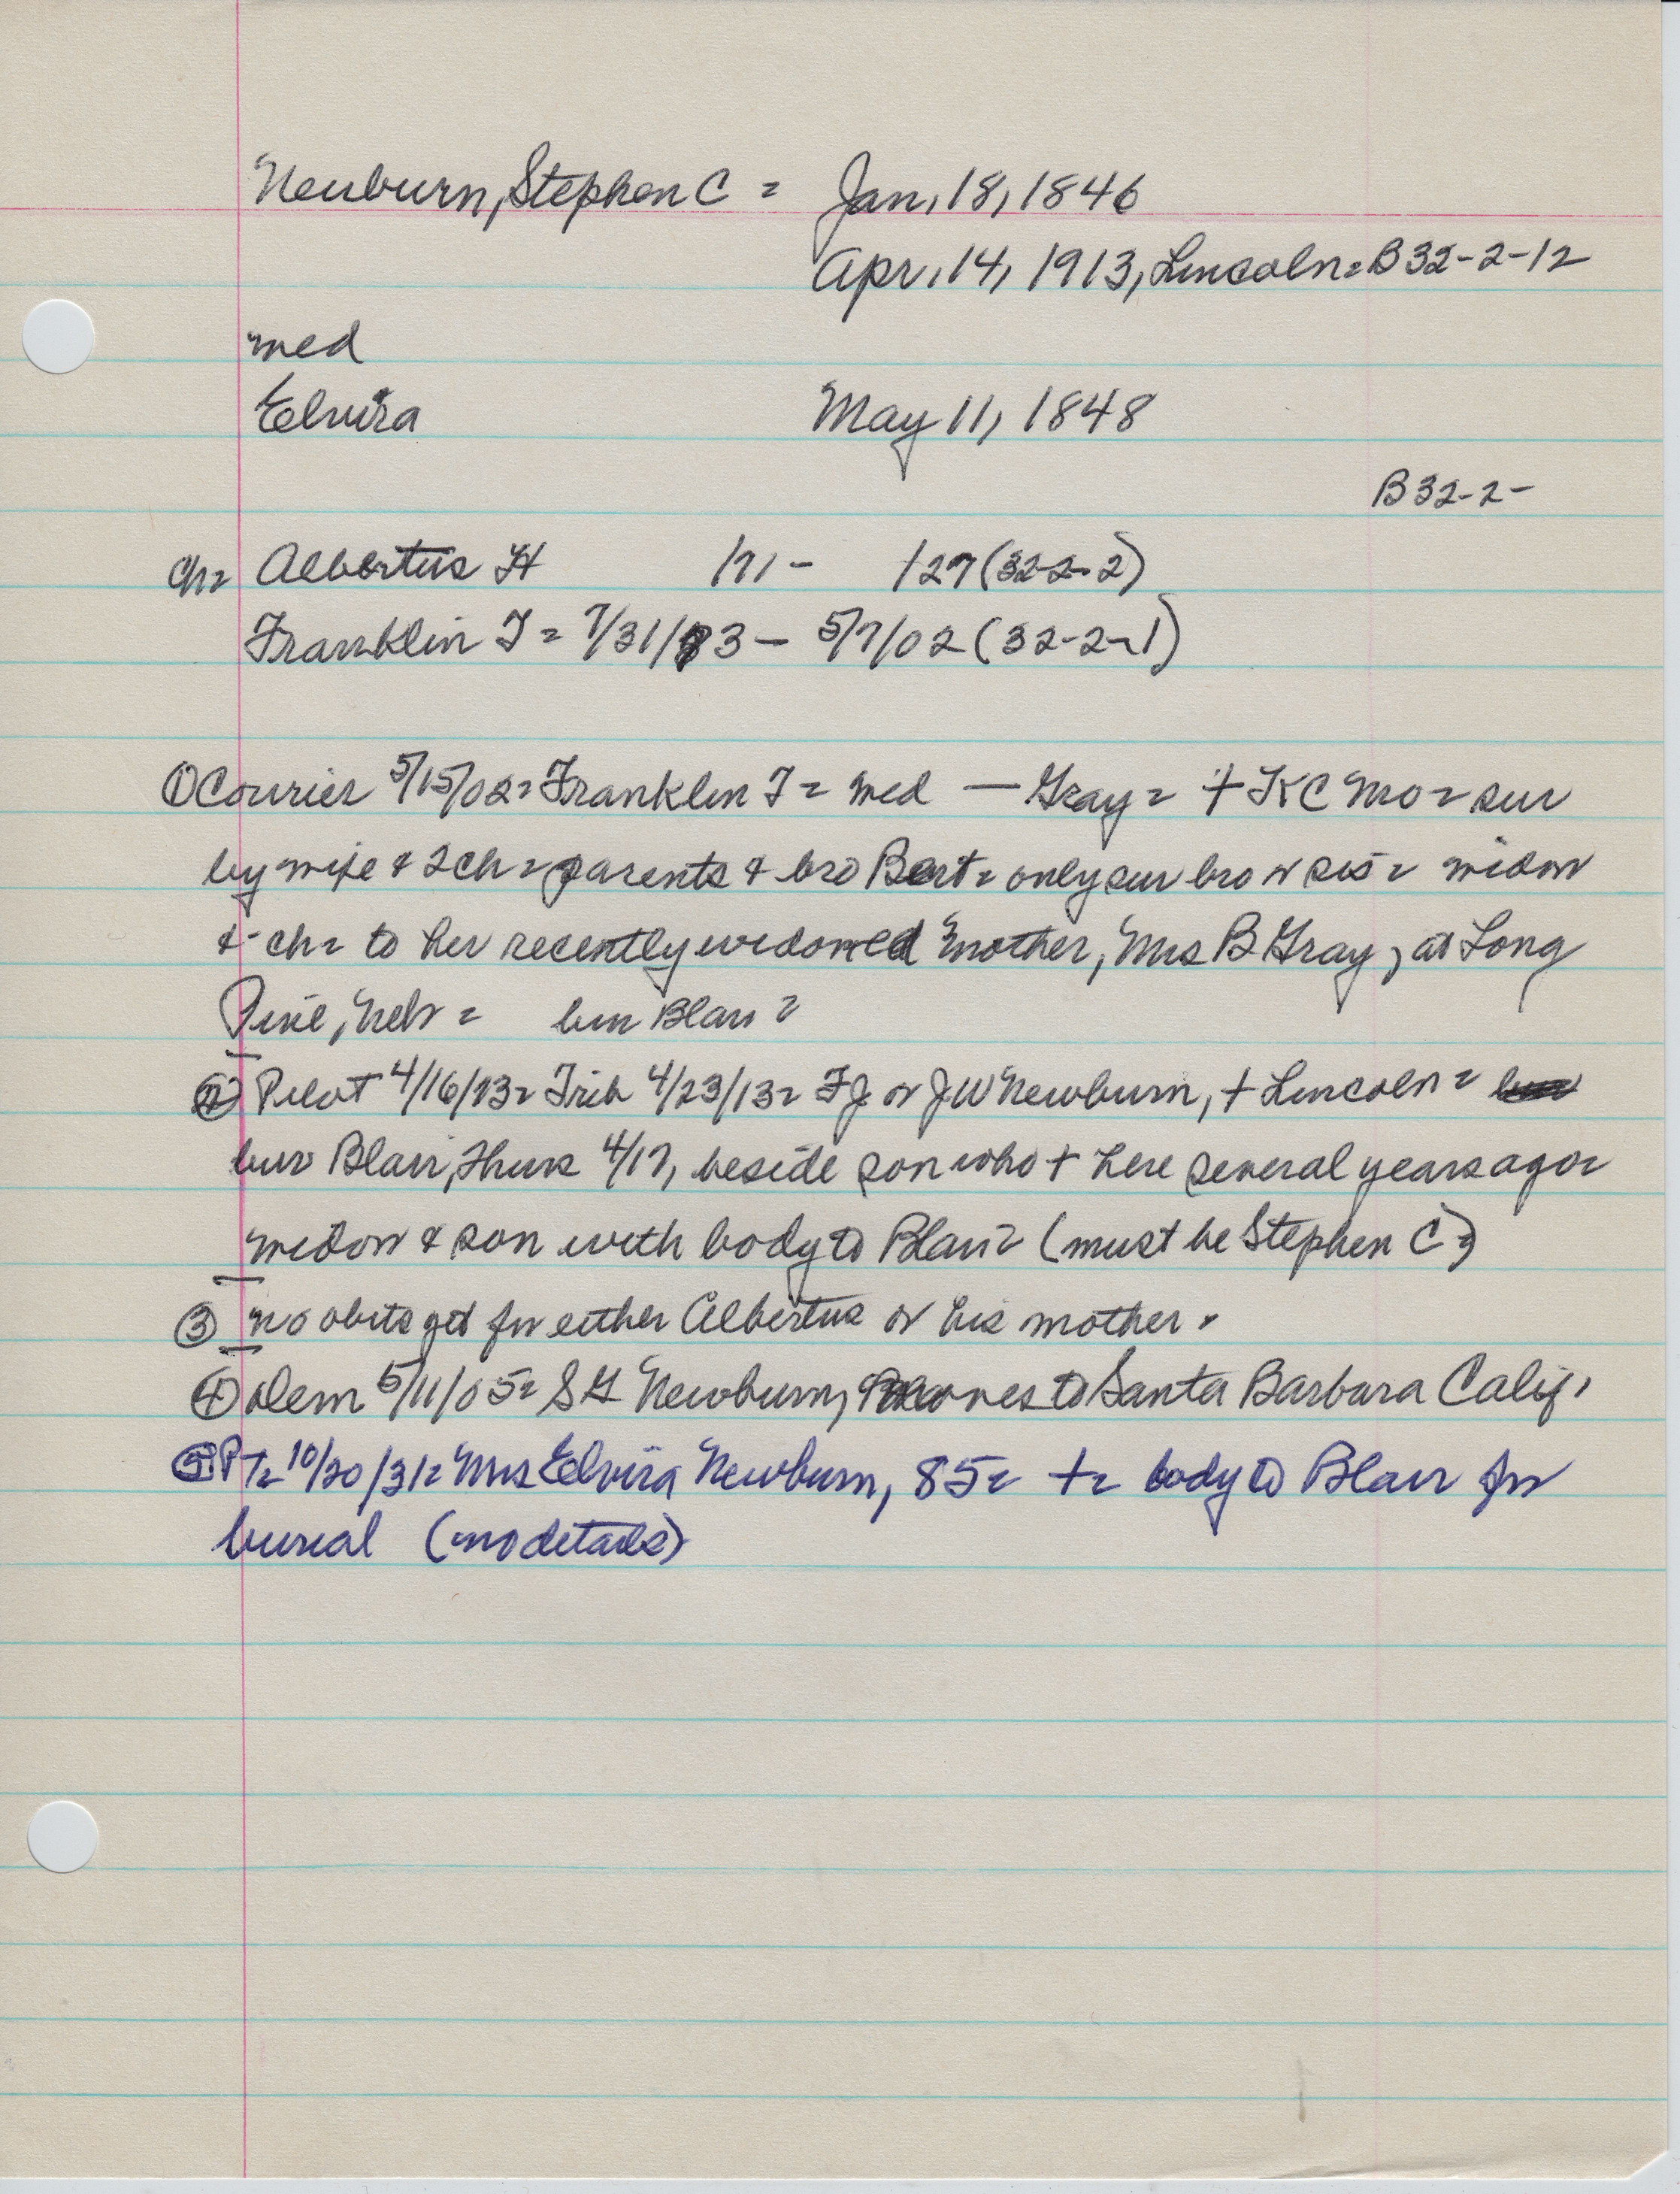 Newburn, Stephen C = Jan, 18, 1846
Apr, 14, 1913, Lincoln = B 32-2-12
med
Elvira May 11, 1848
B 32-2-
ch = Albertus H /71 - /27 (32-2-2)
Franklin J = 7/31/73 - 5/7/02 (32-2-1)
① Courier 5/15/02 = Franklin J = med — Gray = + KC Mo = sur
by wife & 2 ch = parents & bro Bert = only sur bro or sis = widow
& ch = to her recently widowed mother, Mrs B Gray, at Long
Pine, Neb = bur Blair =
② Pilot 4/16/13 = Trib 4/23/13 = FJ or JW Newburn, + Lincoln =
bur Blair, Thurs 4/17, beside son who + here several years ago =
widow & son with body to Blair = (must be Stephen C =)
③ no obits yet for either Albertus or his mother.
④ Dem 5/11/05 = S G Newburn, moves to Santa Barbara Calif.
⑤ PT = 10/20/31 = Mrs Elvira Newburn, 85 = + = body to Blair for
burial (no details)